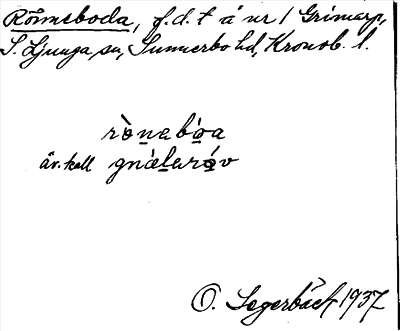 Rönneboda, f.d. t å nr 1 Grimarp,
S. Ljunga sn, Sunnerbo hd, Kronob. l.
rònabǫa
äv. kall gnǽlaráv
O. Segerbäck 1937